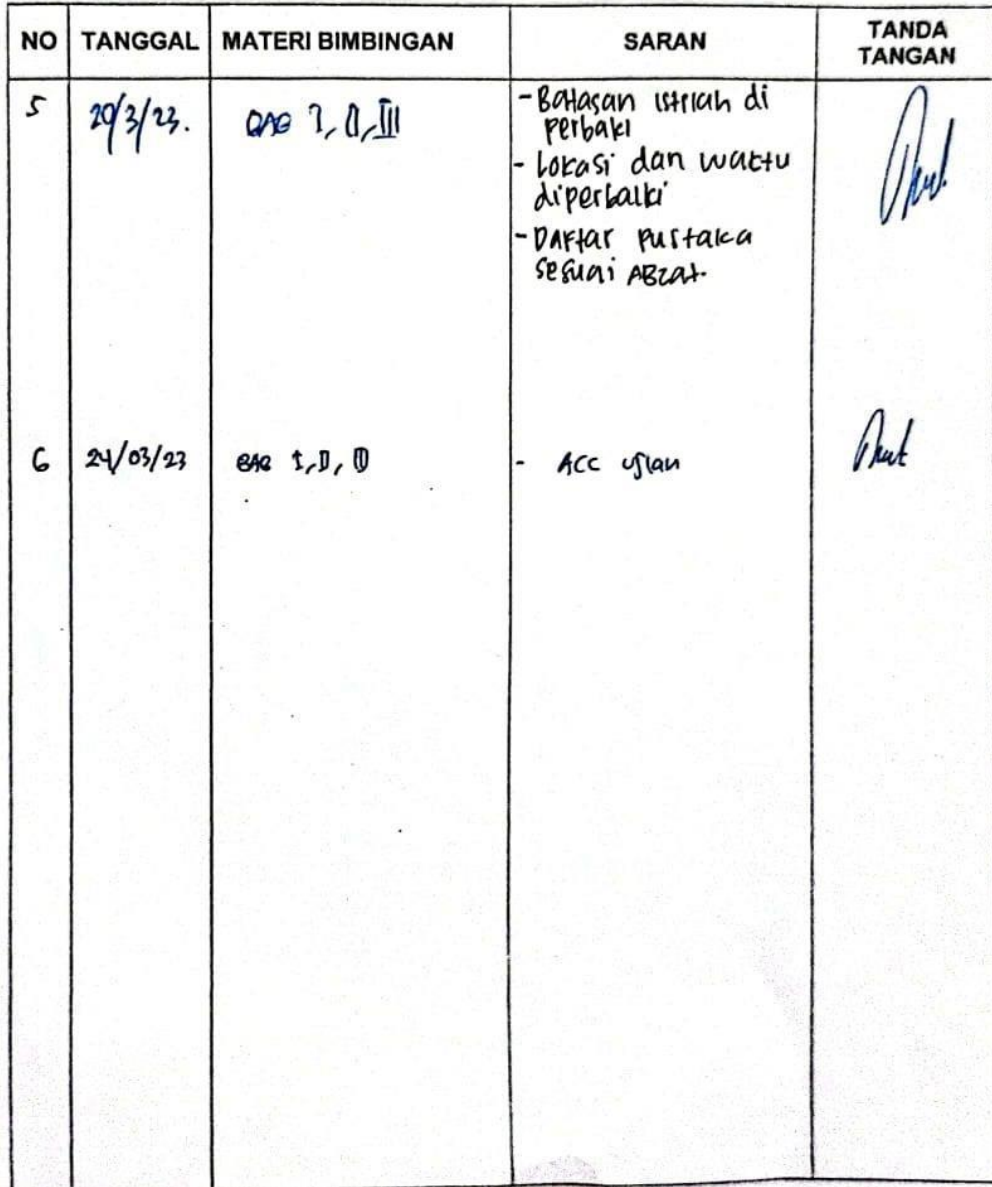 NO TANGGAL MATERI BIMBINGAN SARAN TANDA TANGAN
5 20/3/23. BAB I, II, III - Batasan istilah di
perbaki
- Lokasi dan waktu
diperbaiki
- Daftar Pustaka
sesuai
6 24/03/23 BAB I, II, III - ACC ujian